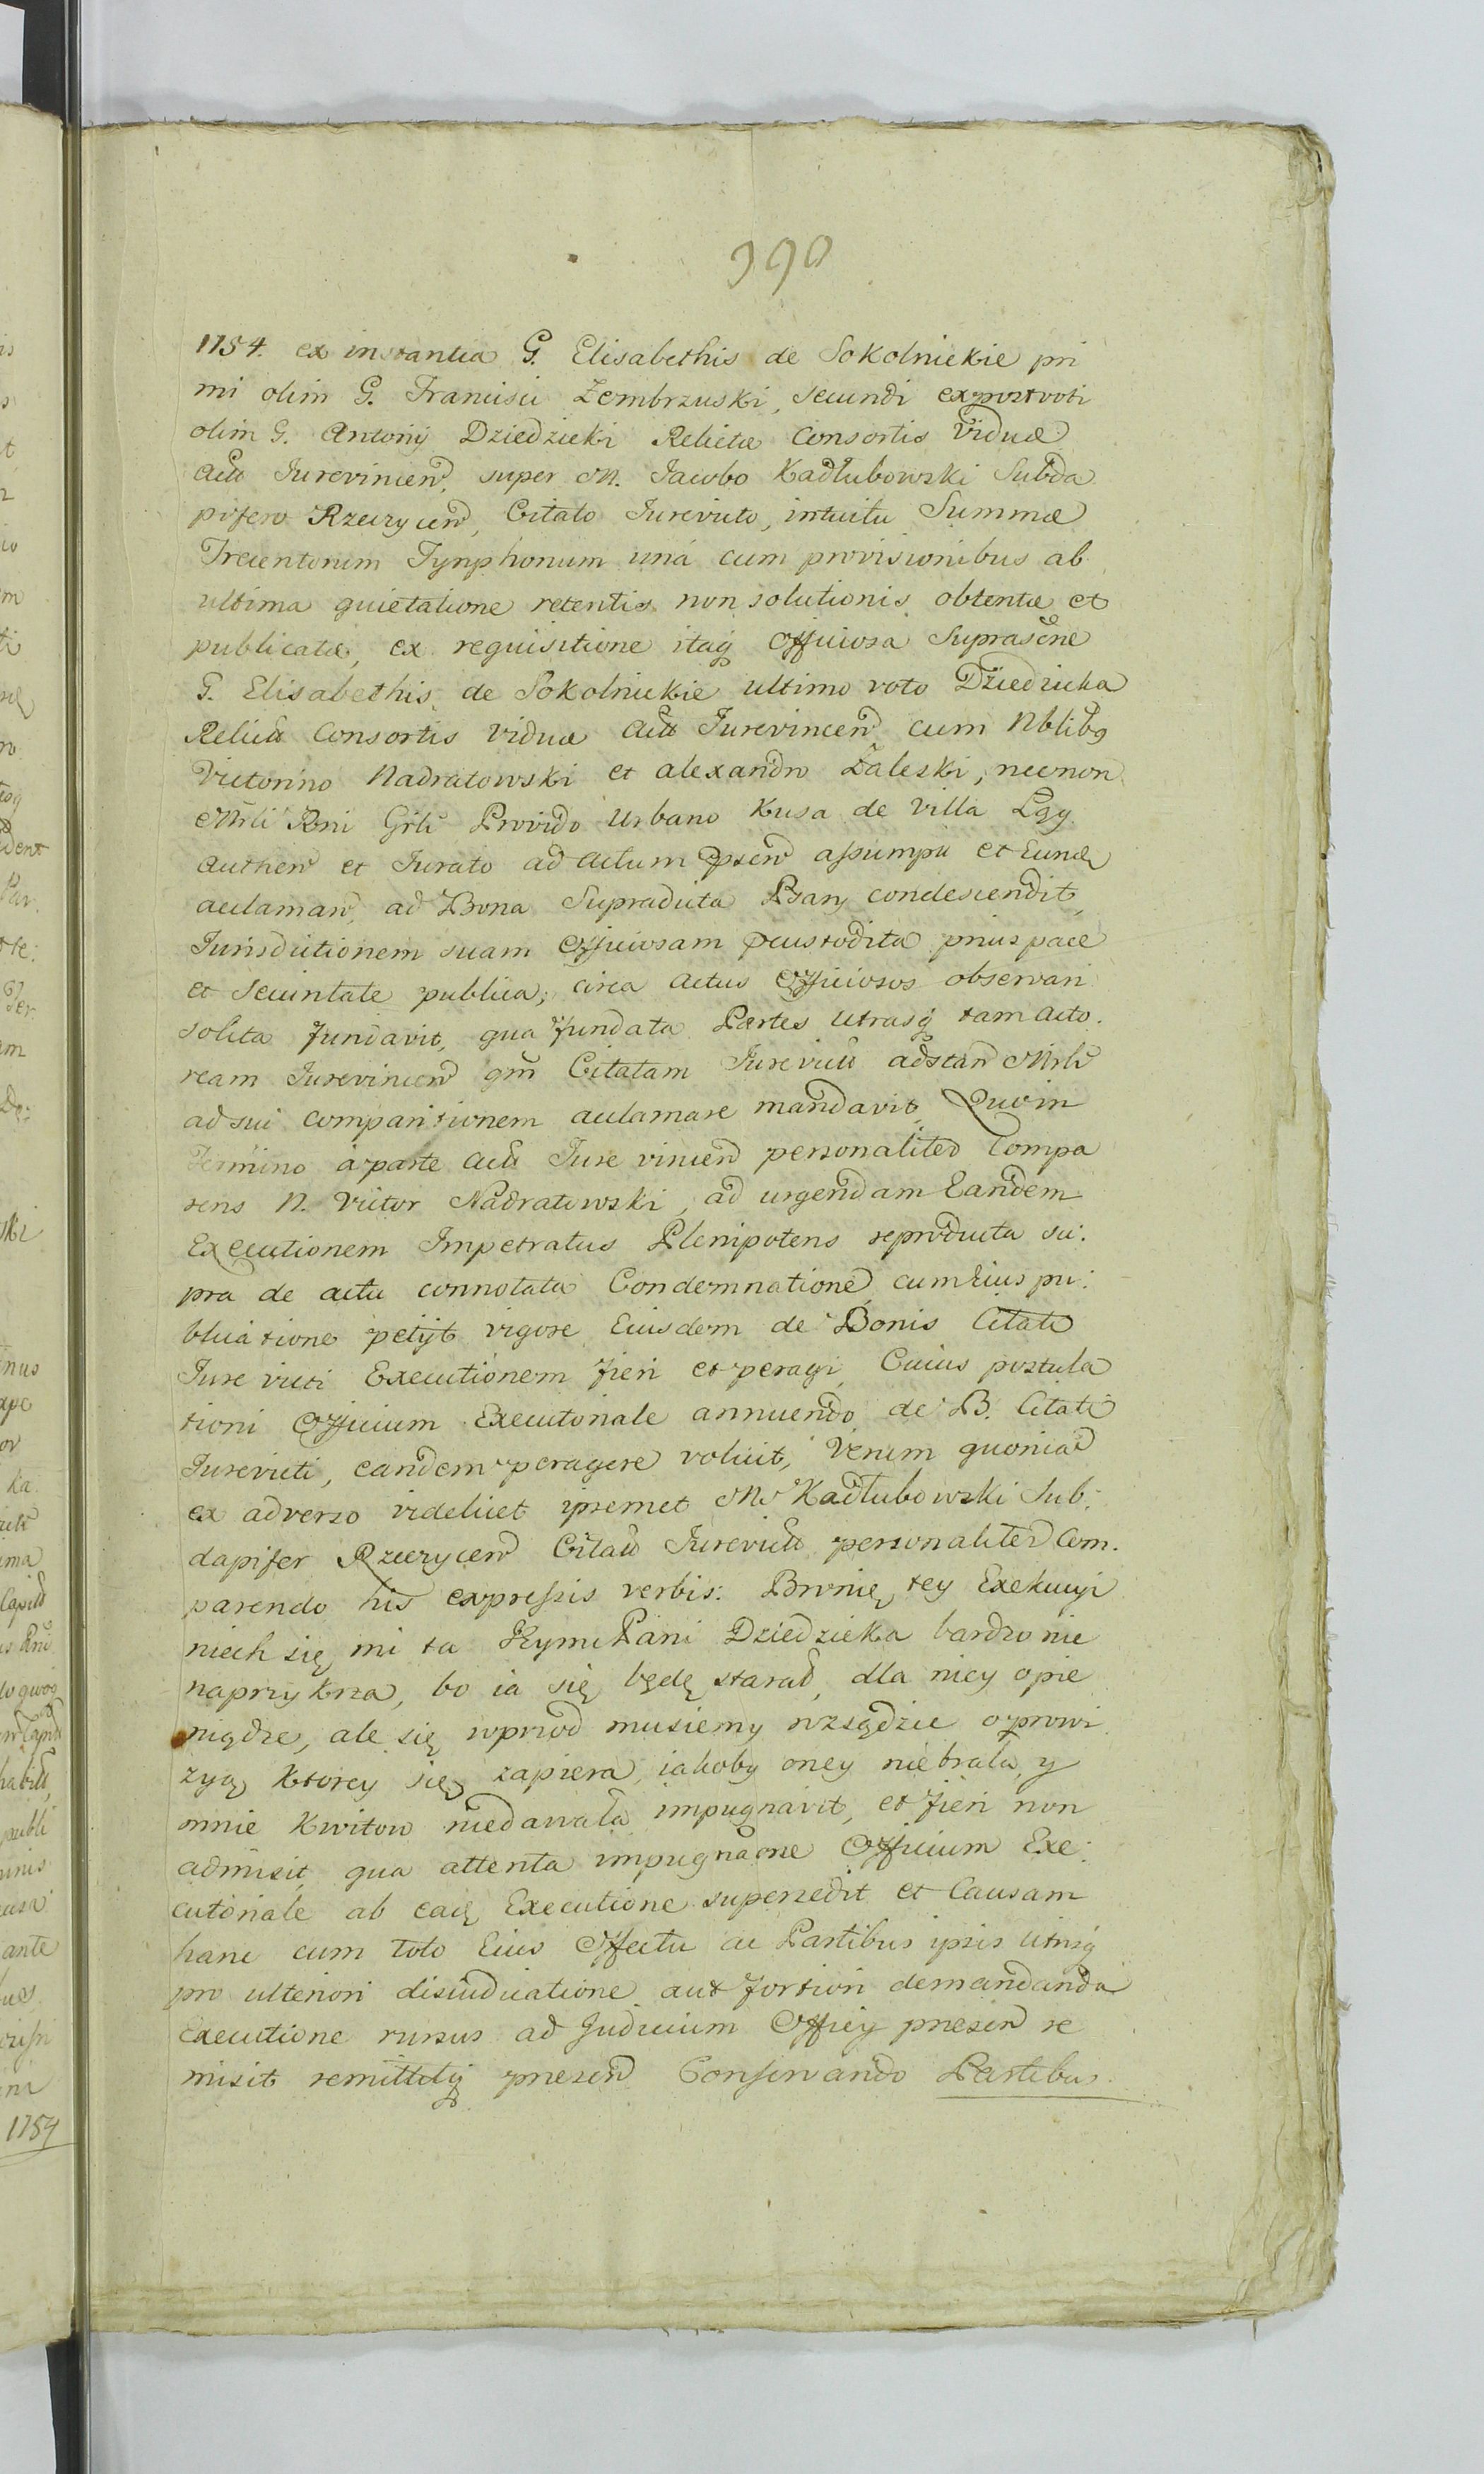 390
1754. ex instantia G. Elisabethis de Sokolnickie pri
mi olim G. Francisci Zembrzuski, secundi expost voti
olim G. Antonij Dziedzicki Relictæ Consortis Viduæ
Act Jurevincen. super M. Jacobo Kadłubowski Subda
pifero Rzeczycen, Citato Jurevicto, intuitu Summæ
Trecentorum Tynphonum una cum provisionibus ab
ultima quietatione retentis non solutionis obtentæ et
publicatæ, ex requisitione itaq Officiosa Suprascne
G. Elisabethis de Sokolnickie ultimo voto Dziedzicka
Relict Consortis viduæ Act Jurevincen cum Nblibg
Victorino Nadratowski et Alexandro Zaleski, necnon
Mrli Rni Grli Provido Urbano Kusa de Villa Lgg
Authen et Jurato ad Actum pnsen assumpti et Eund
acclaman, ad Bona Supradicta Psary condescendit,
Jurisdictionem suam Officiosam pcustodita prius pace
et securitate publica, circa Actus Officiosos observari
solita fundavit, qua fundata Partes utrasq tam Acto.
ream Jurevincen qm Citatam Jurevict adstan Mrli
ad sui comparitionem acclamare mandavit, Quo in
Termino a parte Act Jure vincen personaliter Compa
rens N. Victor Nadratowski, ad urgendam Eandem
Executionem Impetratus Plenipotens reproducta su:
pra de actu connotata Condemnatione cum Eius pu:
blicatione petijt vigore Eiusdem de Bonis Citati
Jure victi Executionem fieri et peragi, Cuius postula
tioni Officium Executoriale annuendo de B. Citati
Jurevicti, eandem peragere voluit, Verum quoniad
ex adverso videlicet ipsemet M Kadłubowski Sub:
dapifer Rzeczycen Citat Jurevict personaliter Com.
parendo his expressis verbis: Bronię tey Exekucyi
niech się mi ta Pani Dziedzicka bardzo nie
naprzykrza, bo ia się będę starał, dla niey o pie
niądze, ale się wprzod musiemy wsądzie o prowi
zyą ktorey się zapiera, iakoby oney niebrała, y
mnie kwitow niedawała impugnavit, et fieri non
admisit, qua attenta impugnaone Officium Exe:
cutoriale ab ead Executione supersedit et Causam
hanc cum toto Eius Effectu ac Partibus ipsis Utrisq
pro ulteriori disiudicatione aut fortiori demandanda
executione rursus ad Judicium Officij præsen re
misit remittitq præsen Conservando Partibus